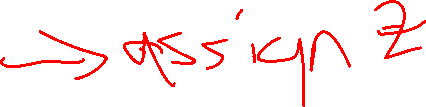 → Assign Z